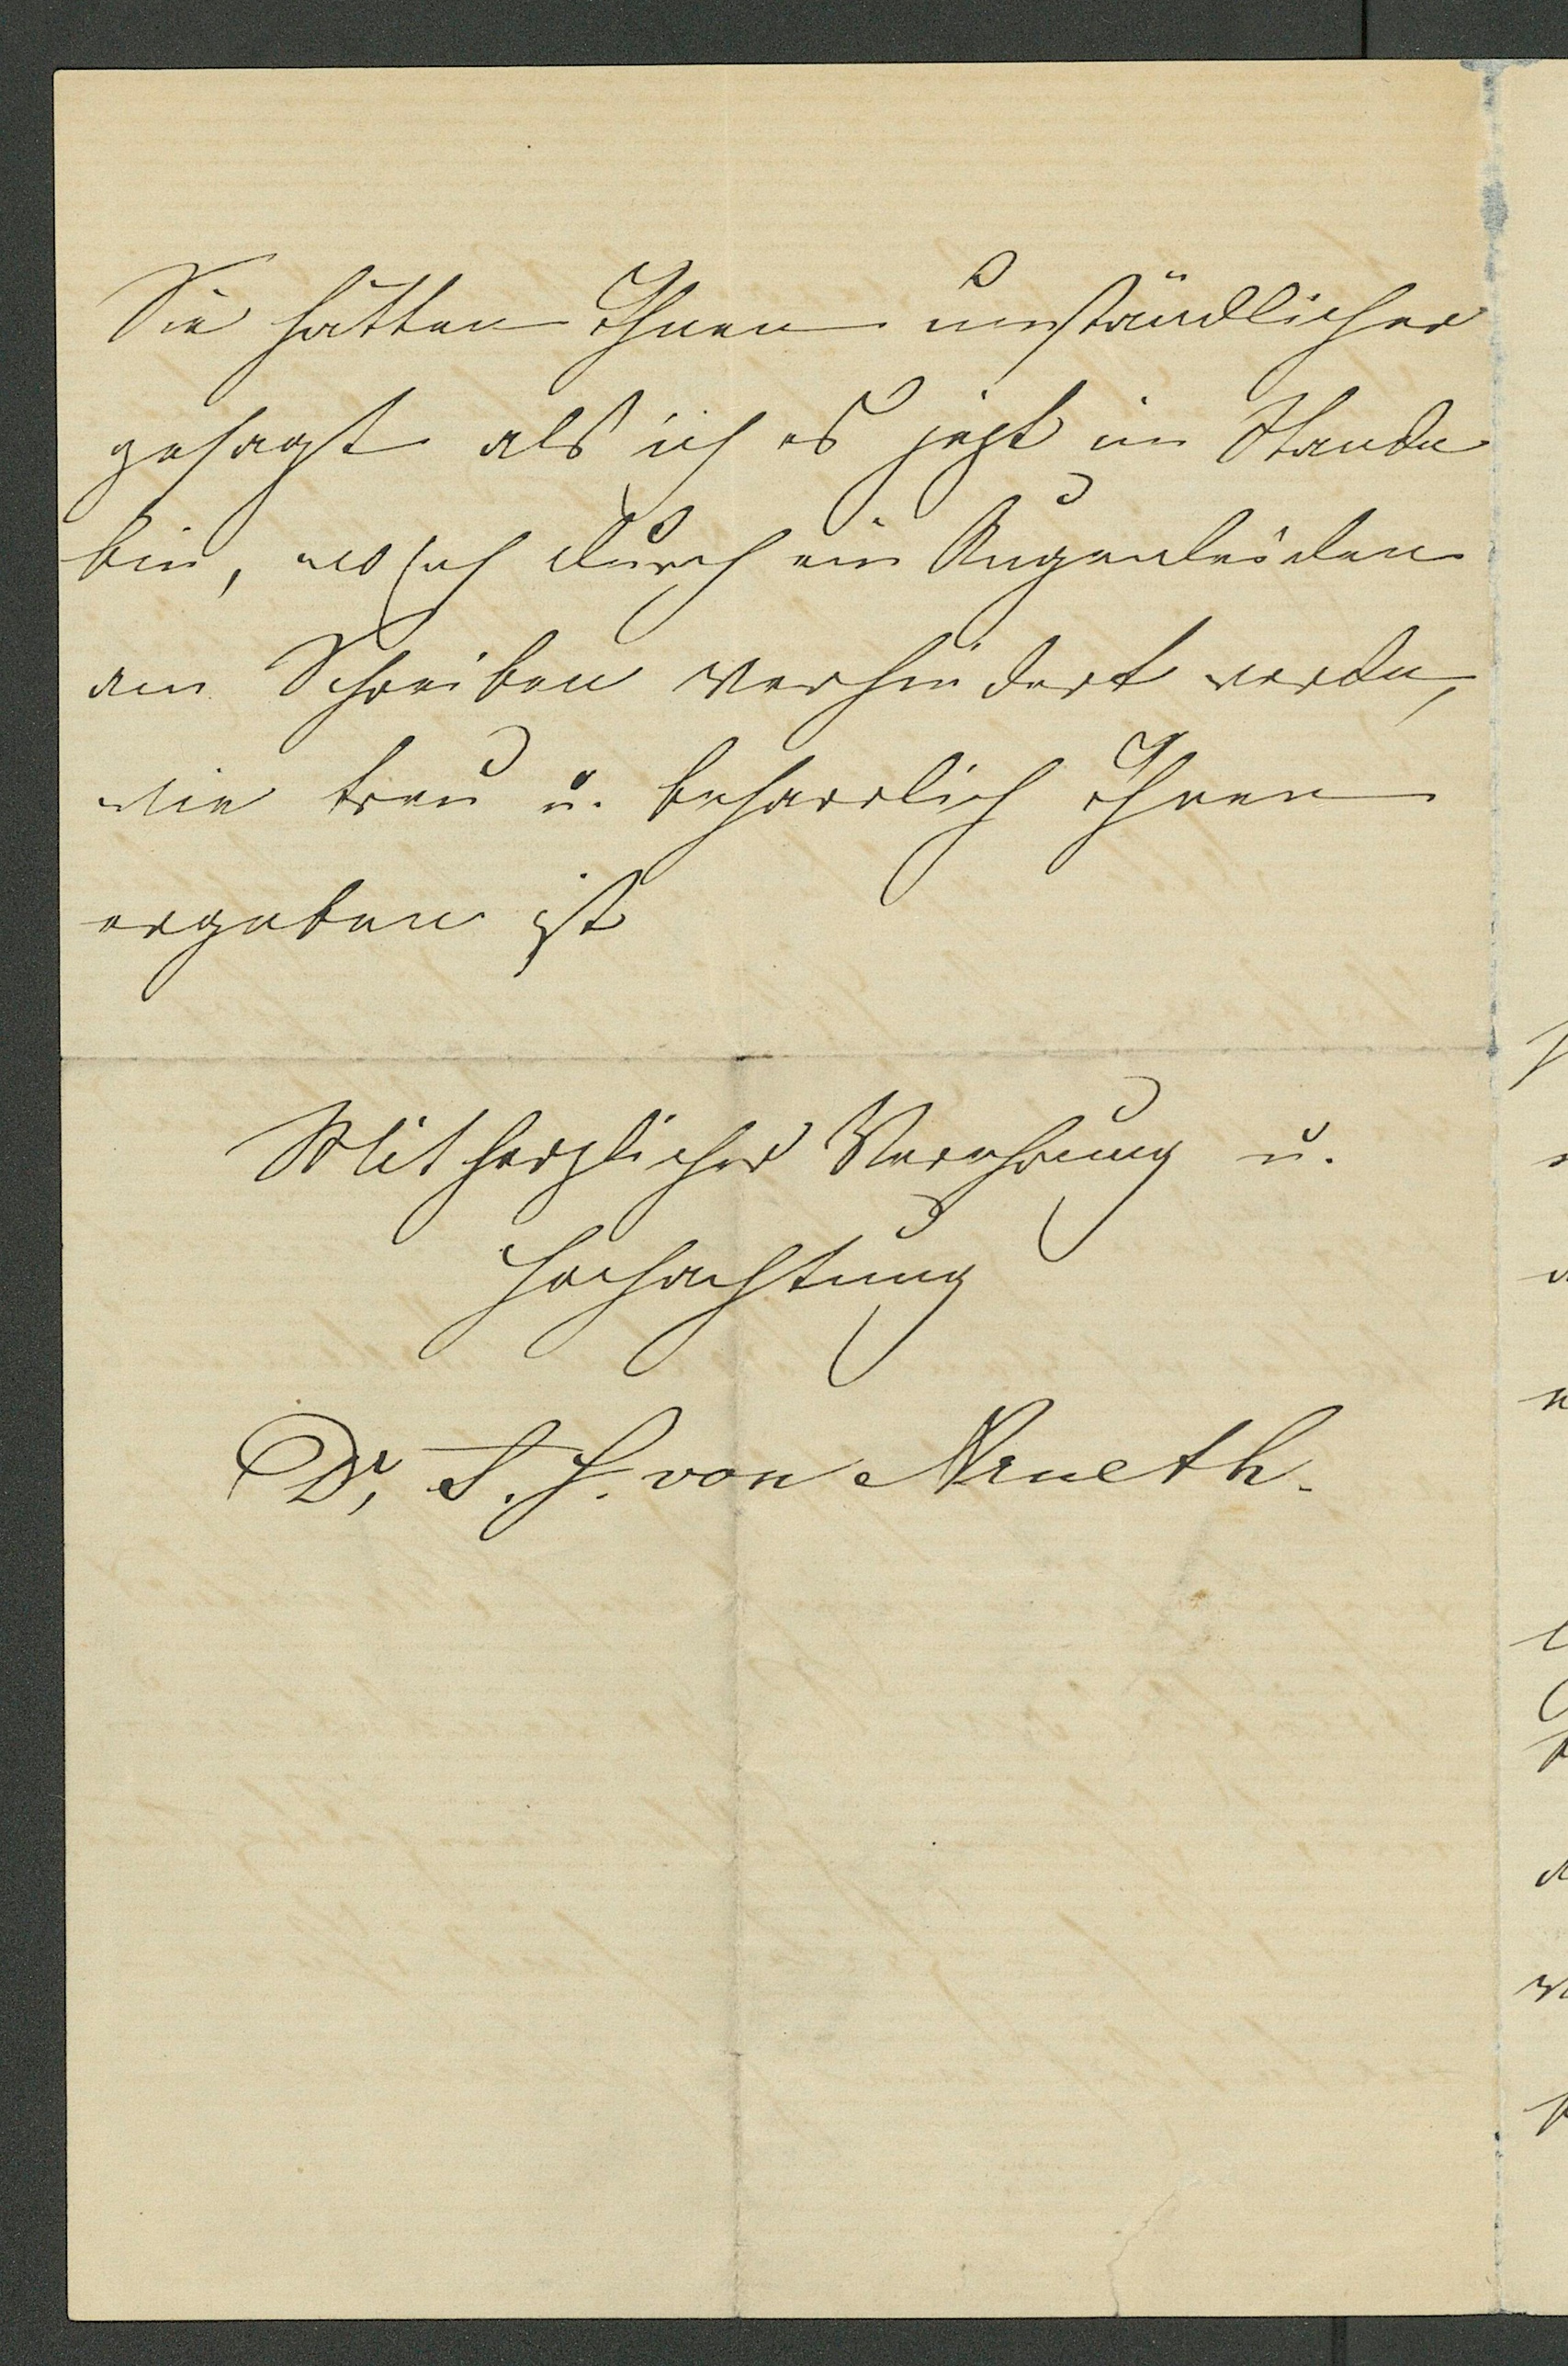 Sie hätten Ihnen umständlicher
gesagt als ich es jetzt im Stande
bin, wo ich durch ein Augenleiden
am Schreiben verhindert werde,
wie treu u. beharrlich Ihnen
ergeben ist
Mit herzlicher Verehrung u.
Hochachtung
Dr. F. H. von Arneth.